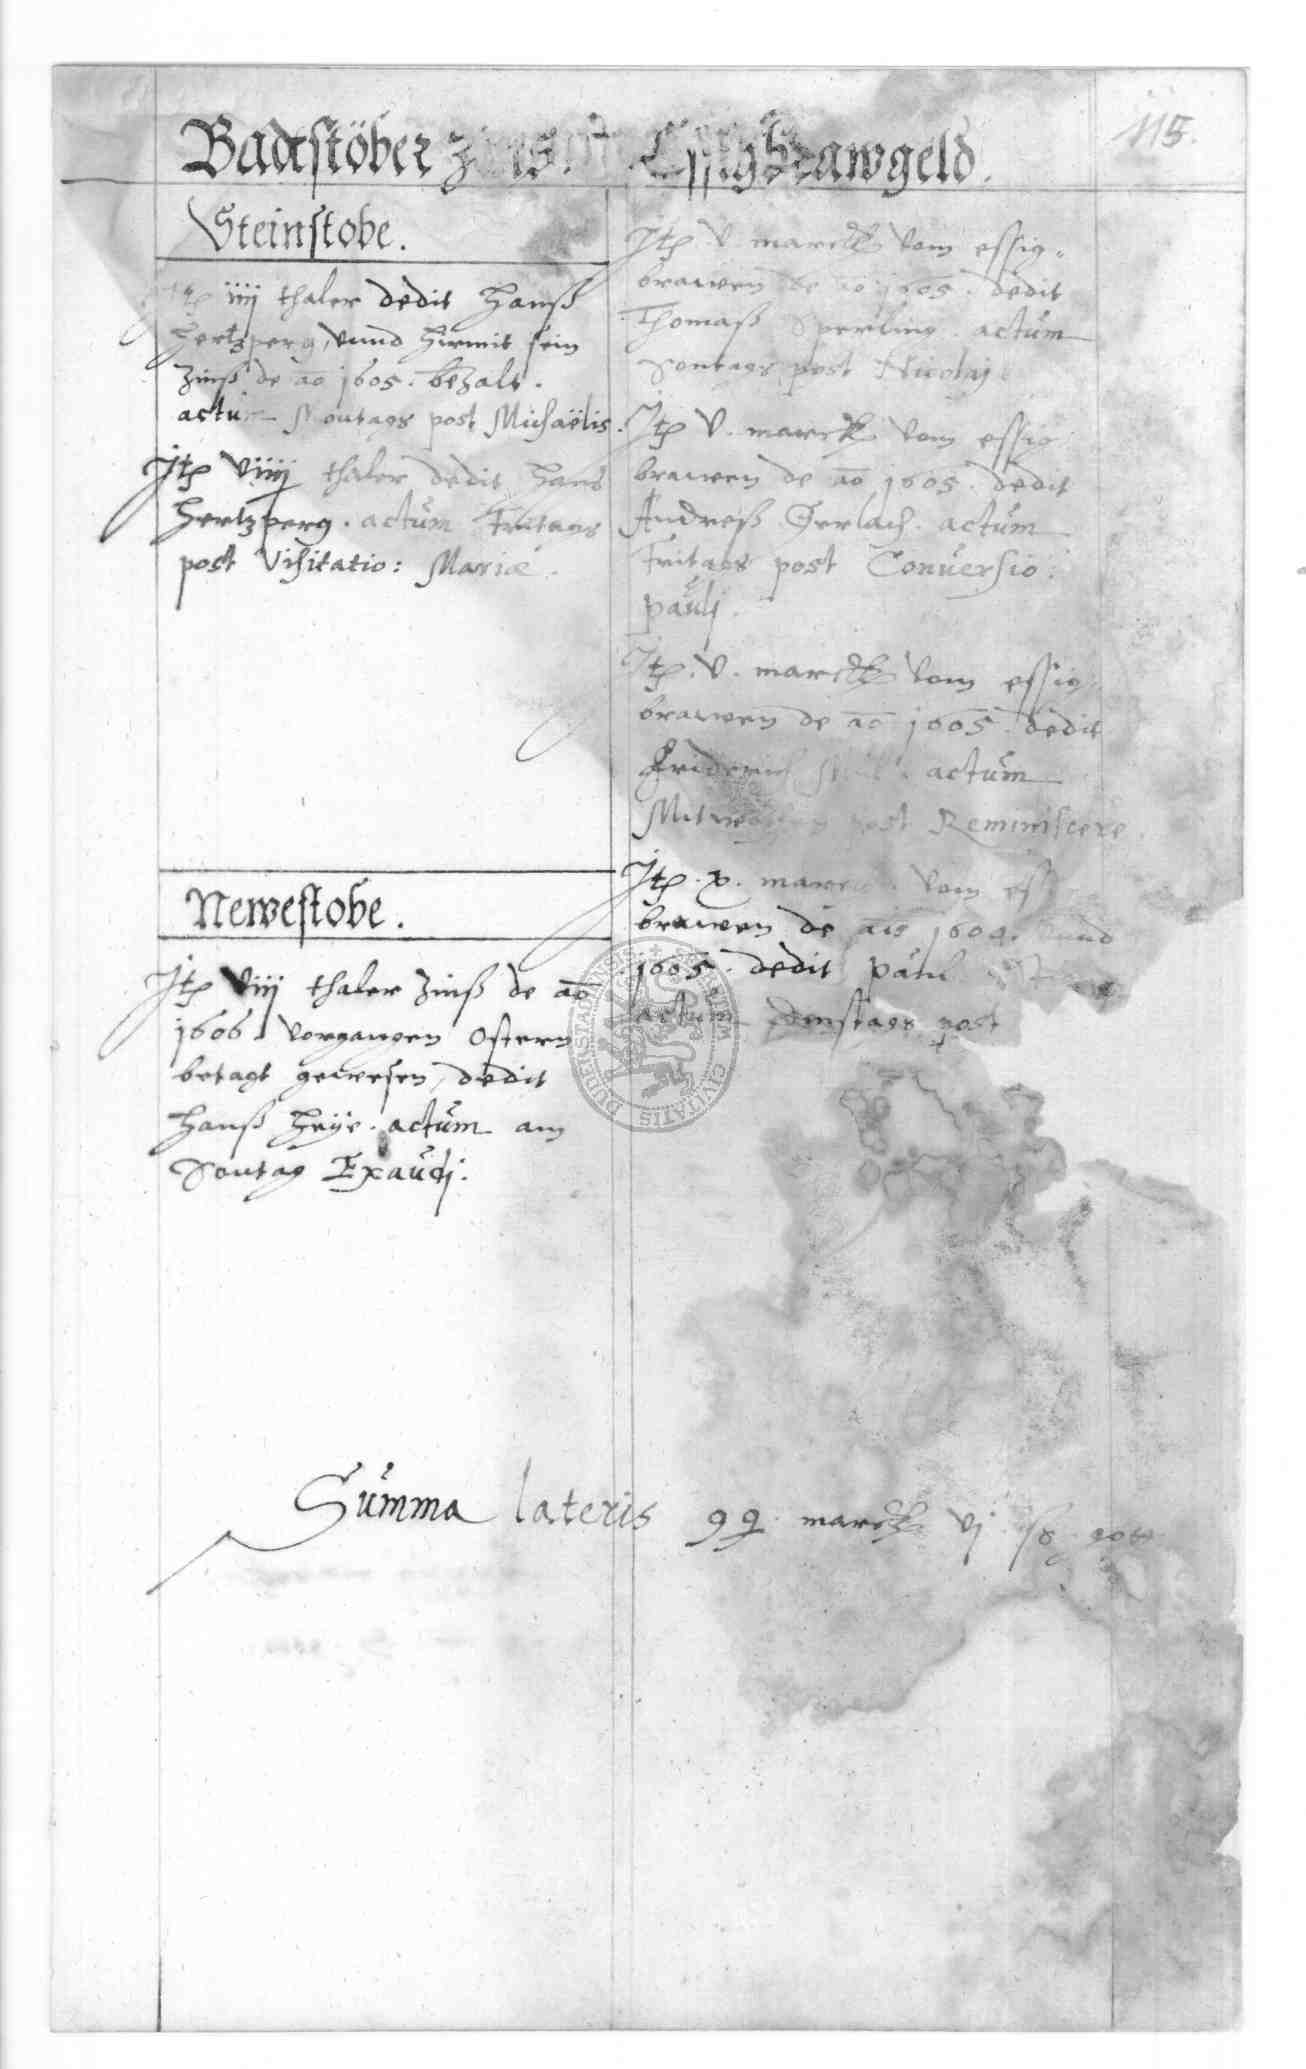 Badtstöber
Steinstobe.
iiij thaler dedit Hanß
Hertzperg, vnnd hirmit sein
Zinß de ao 1605. bezalt.
actum Montags post Michaëlis.
Itp viiij thaler dedit Hans
Hertzperg. actum Fritags
post Visitatio: Mariæ.
Newestobe.
Itp viij thaler Zinß de ao
1606 vorgangen Ostern
betagt gewesen, dedit
Hanß Heÿe. actum am
Sontag Exaudj.
Essigbrawgeld.
115.
Itp. v. marck vom essig-
brawen de ao 1605. dedit
Thomaß Sperling. actum
Sontags post Nicolaj
Itp v. marck vom essig
brawen de ao 1605. dedit
Andreß Gerlach. actum
Fritags post Conuersio:
paulj.
Itp. v. marck vom essig-
brawen de ao 1605. dedit
Friderich actum
Mitwochen post Reminiscere.
Itp. x. marck vom
brawen de ais 1604. vnnd
1605. dedit paul
actum Dinstags post
Summa lateris 99. marck vj
SIGILLUM CIVITATIS DUDERSTADENSIS